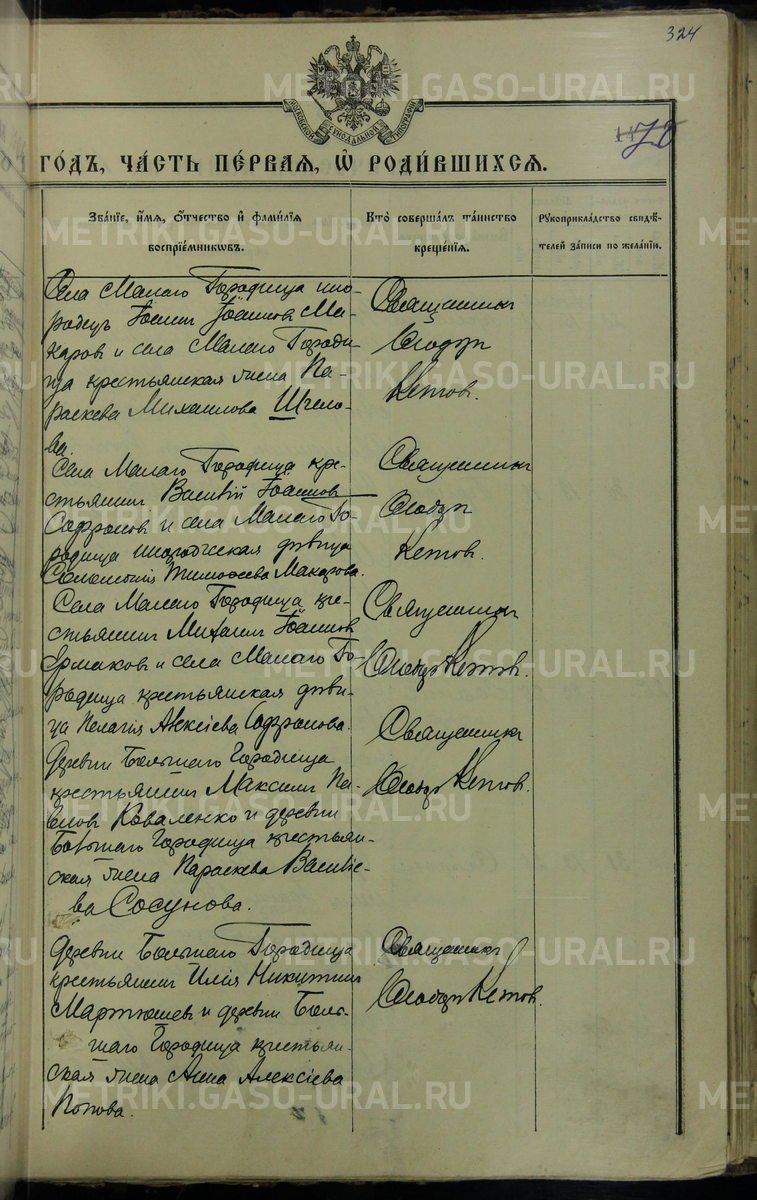 324
МОСКОВСКОЙ СУНОДАЛЬНОЙ ТИПОГРАФІИ
70
ГОДЪ, ЧАСТЬ ПЕРВАЯ, Ѡ РОДИВШИХСЯ.
Званіе, имя, отчество и фамилія
воспріемниковъ.
Кто совершалъ таинство
крещенія.
Рукоприкладство свидѣ-
телей записи по желанію.
Села Малаго Городища ино-
родецъ Іоаннъ Іоанновъ Ма-
каровъ и села Малаго Городи-
ща крестьянская жена Па-
раскева Михаилова Щегло-
ва.
Священникъ
Кетовъ.
Села Малаго Городища кре-
стьянинъ Василій Іоанновъ
Софроновъ и села Малаго Го-
родища инородческая дѣвица
Тимофеева Макарова.
Священникъ
Кетовъ.
Села Малаго Городища кре-
стьянинъ Михаилъ Іоанновъ
Ермаковъ и села Малаго Го-
родища крестьянская дѣви-
ца Пелагія Алексіева Софронова.
Священникъ
Кетовъ.
Деревни Большаго Городища
крестьянинъ Максимъ Па-
вловъ Коваленко и деревни
Большаго Городища крестьян-
ская жена Параскева Василіе-
ва Сосунова.
Священникъ
Кетовъ.
Деревни Большаго Городища
крестьянинъ Илія Никитинъ
Мартюшевъ и деревни Боль-
шаго Городища крестьян-
ская жена Анна Алексіева
Попова.
Священникъ
Кетовъ.
METRIKI.GASO-URAL.RU